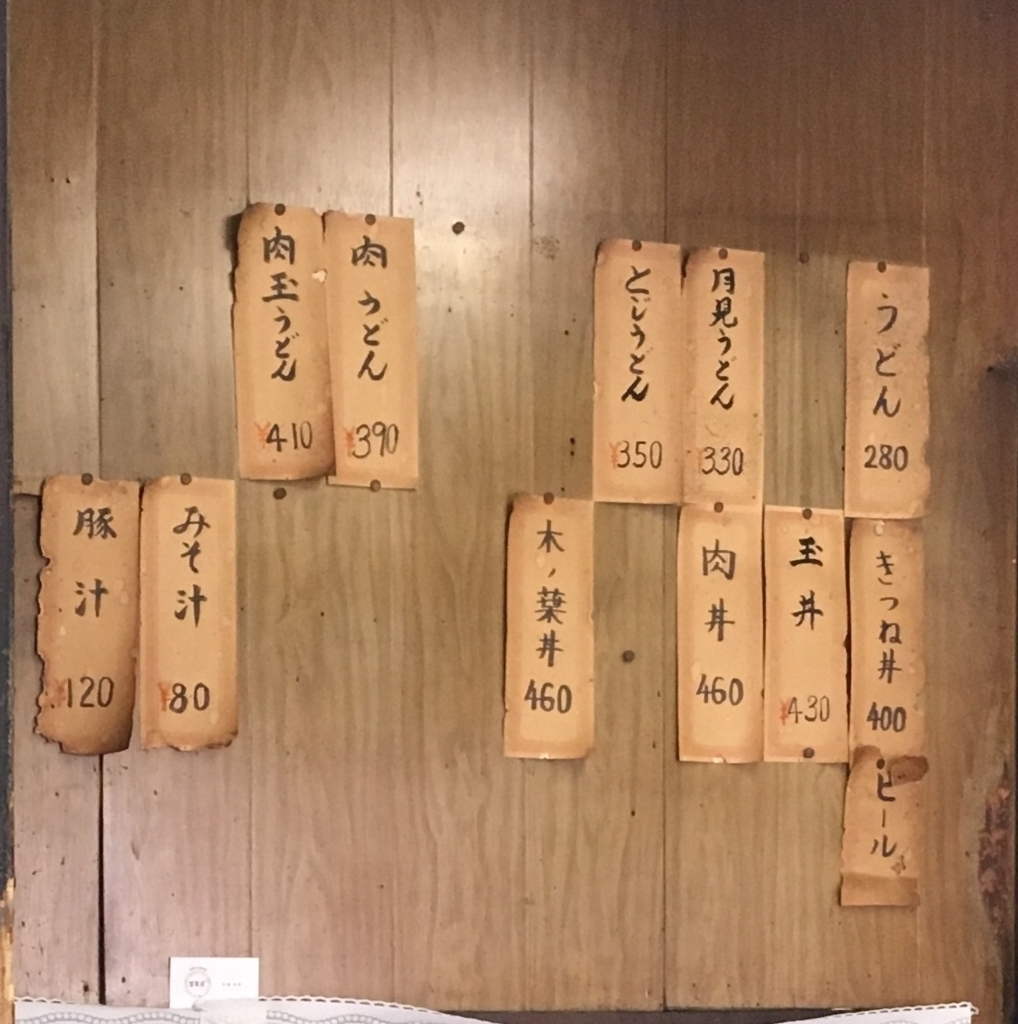 うどん
280
月見うどん
¥330
とじうどん
¥350
肉うどん
¥390
肉玉うどん
¥410
きつね丼
400
玉丼
¥430
肉丼
460
木ノ葉丼
460
みそ汁
¥80
豚汁
¥120
ビール